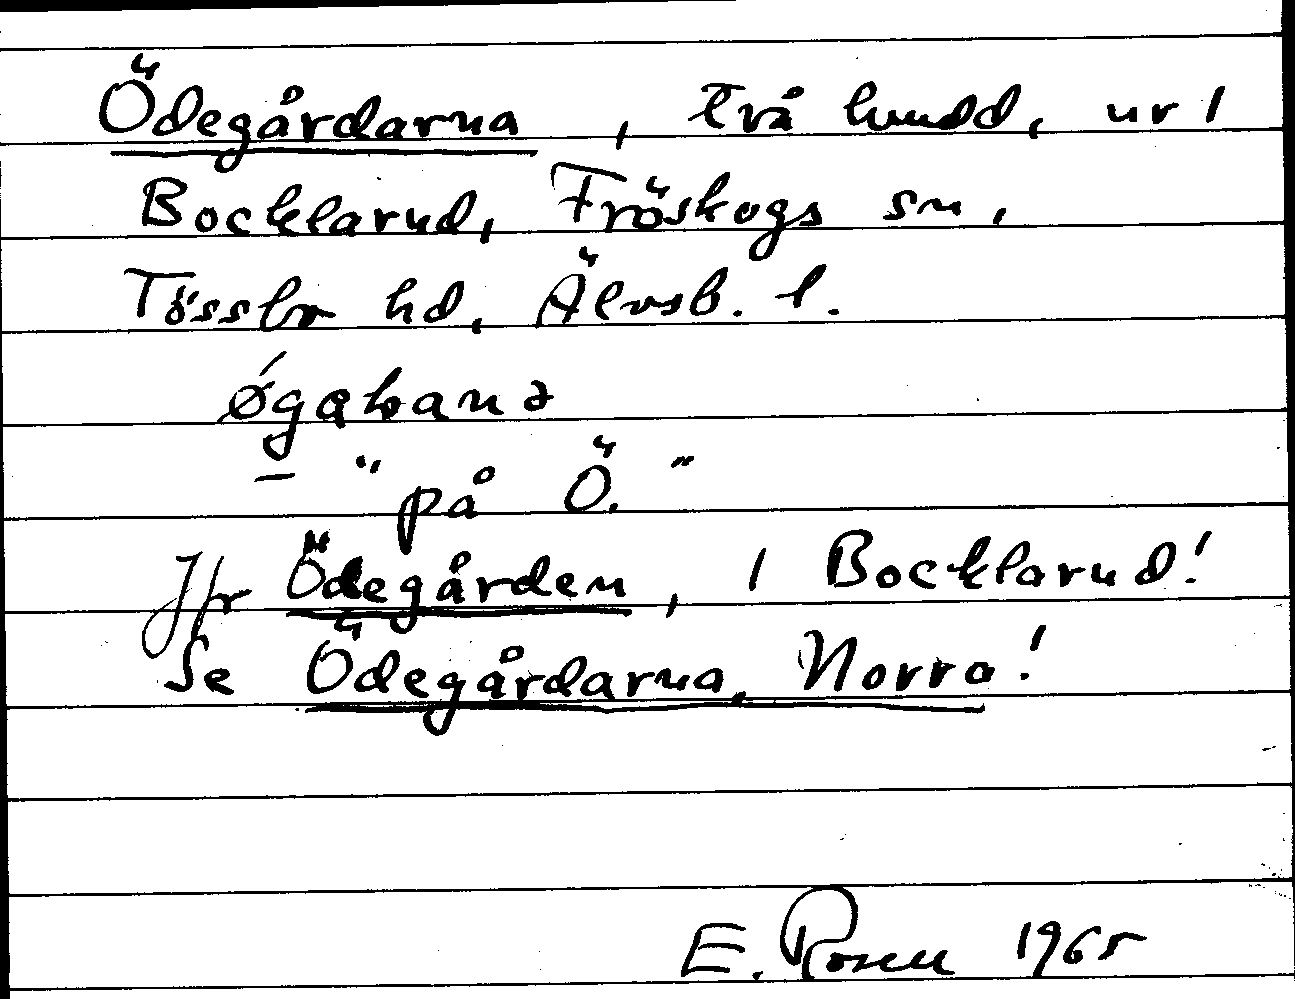 Ödegårdarna, två hmdd, ur 1
Bocklarud, Fröskogs sn,
Tössbo hd, Älvsb. l.
- "på Ö."
Jfr Ödegården, 1 Bocklarud!
Se Ödegårdarna, Norra!
E. Rosen 1965